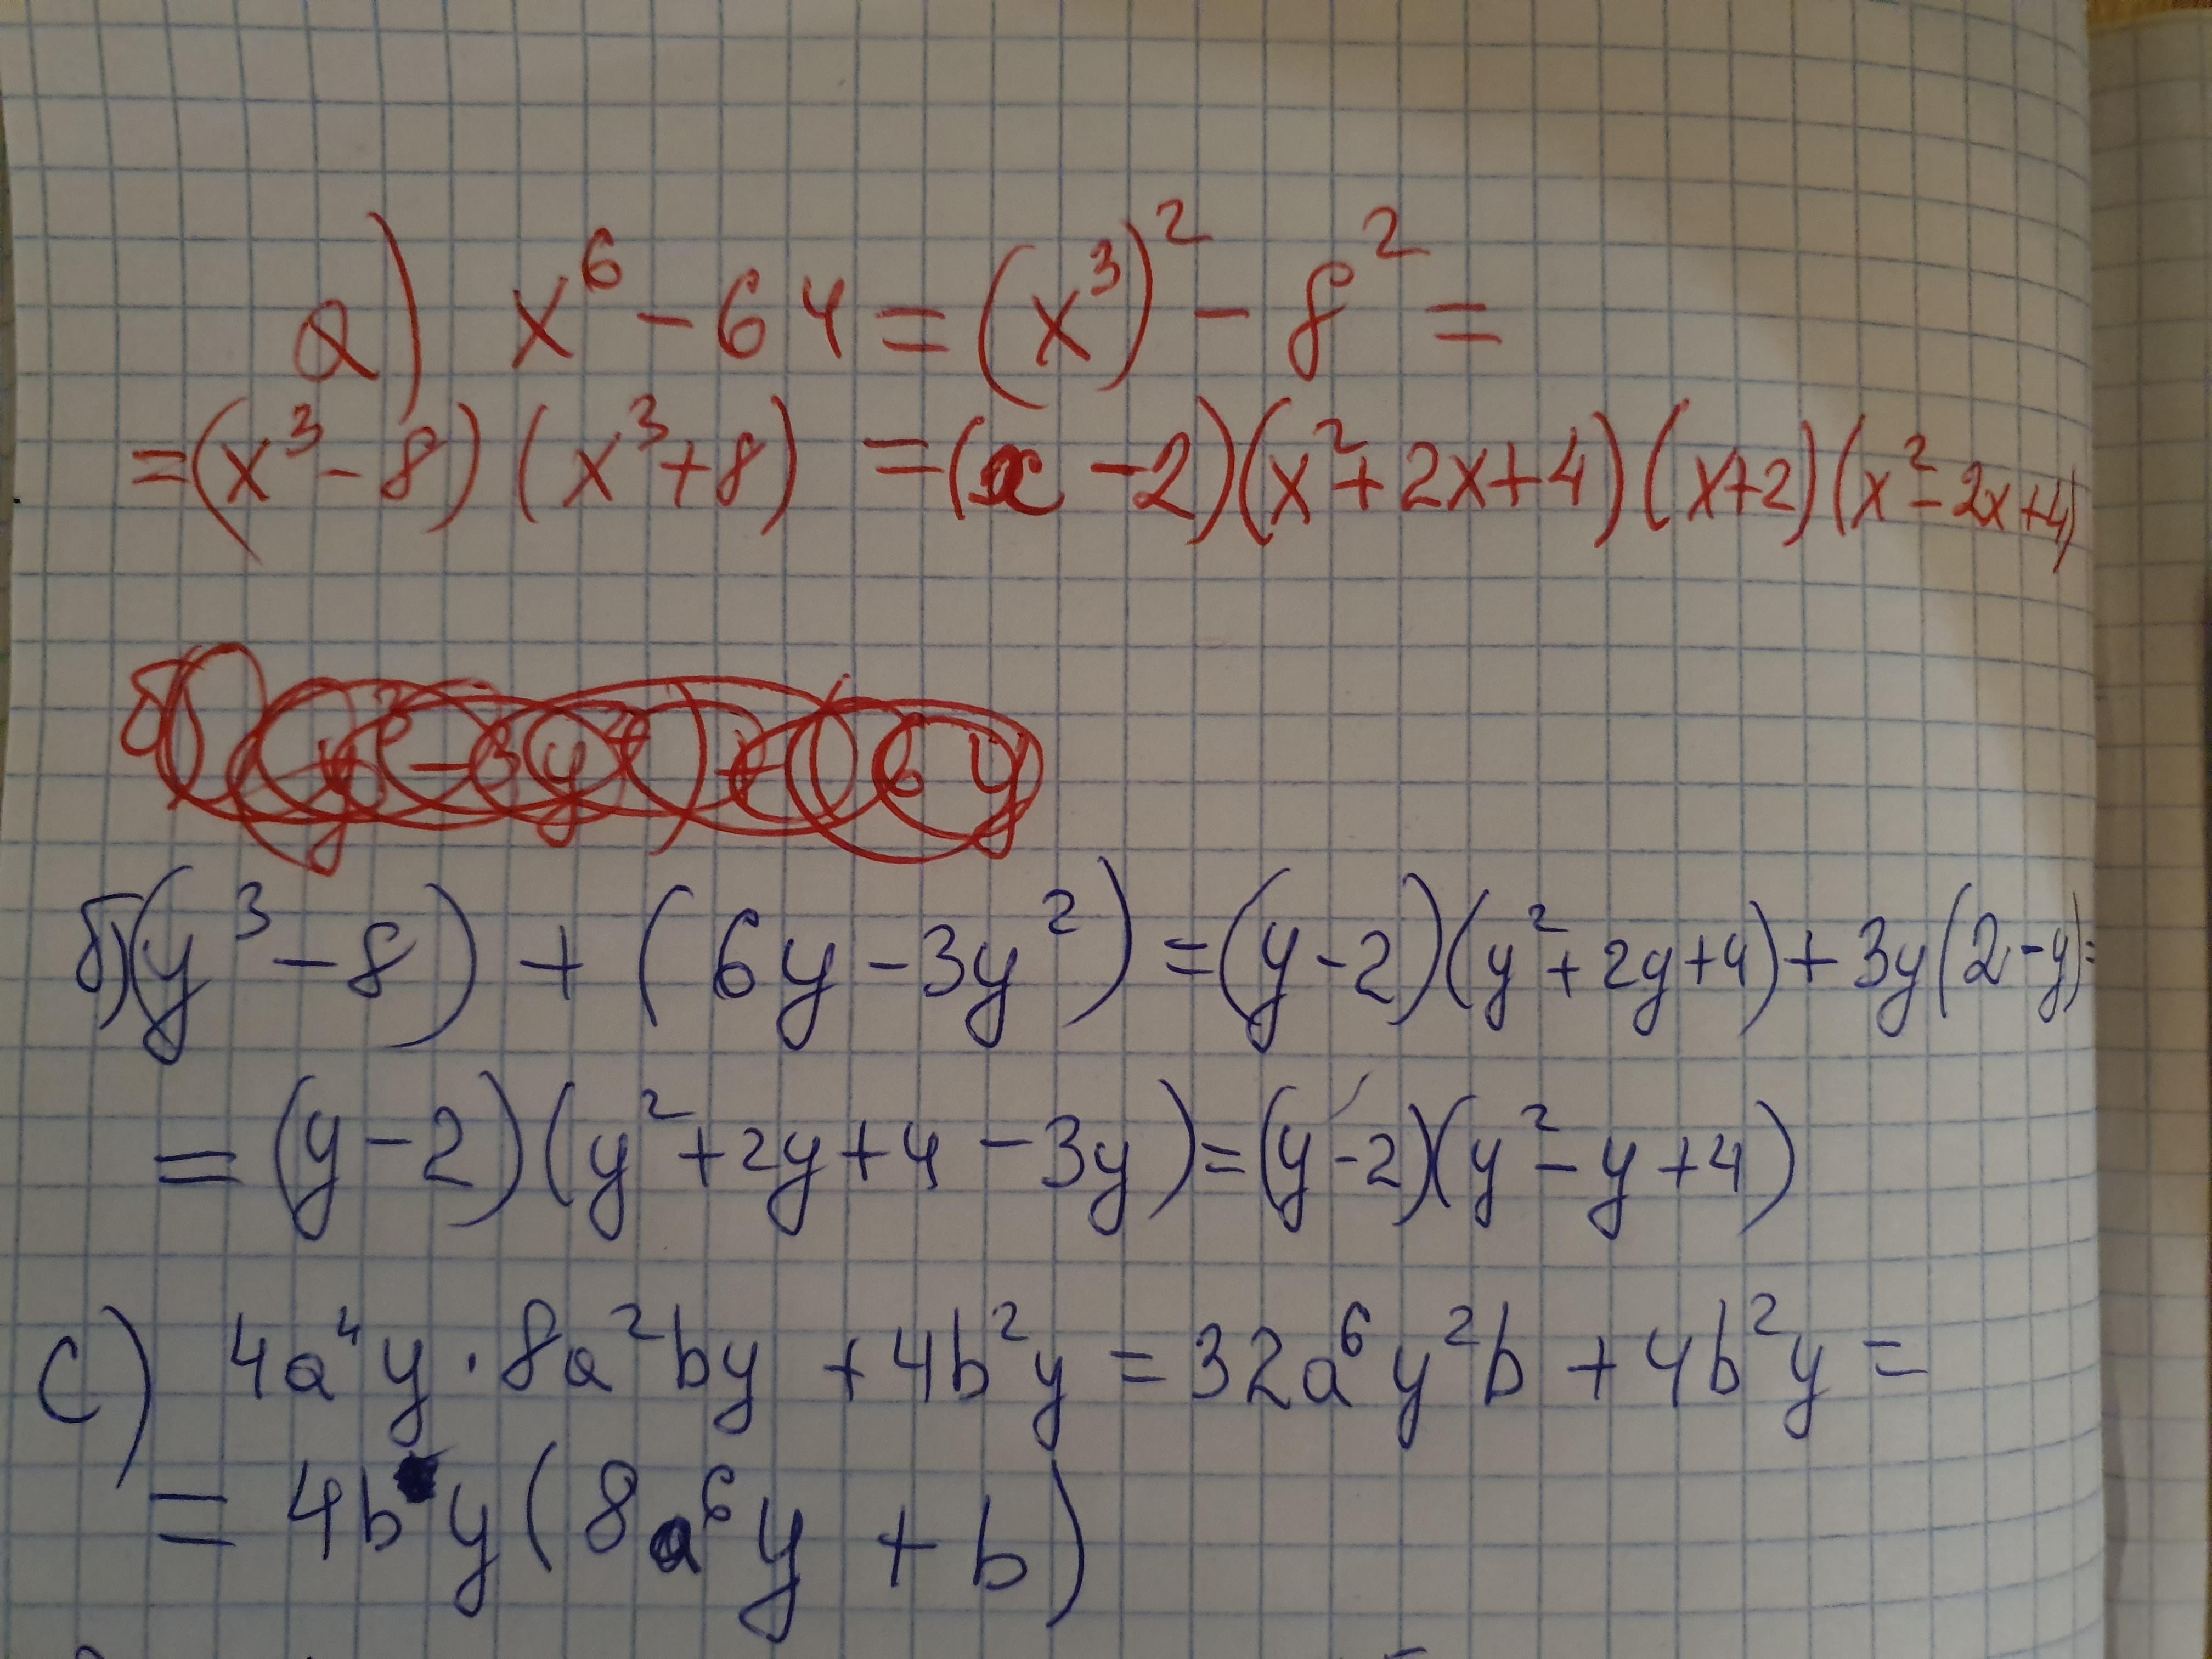 а) x⁶ - 64 = (x³)² - 8² =
= (x³ - 8) (x³ + 8) = (x - 2)(x² + 2x + 4)(x + 2)(x² - 2x + 4)
б) (y³ - 8) + (6y - 3y²) = (y - 2)(y² + 2y + 4) + 3y(2 - y) =
= (y - 2)(y² + 2y + 4 - 3y) = (y - 2)(y² - y + 4)
c) 4a⁴y · 8a²by + 4b²y = 32a⁶y²b + 4b²y =
= 4by(8a⁶y + b)